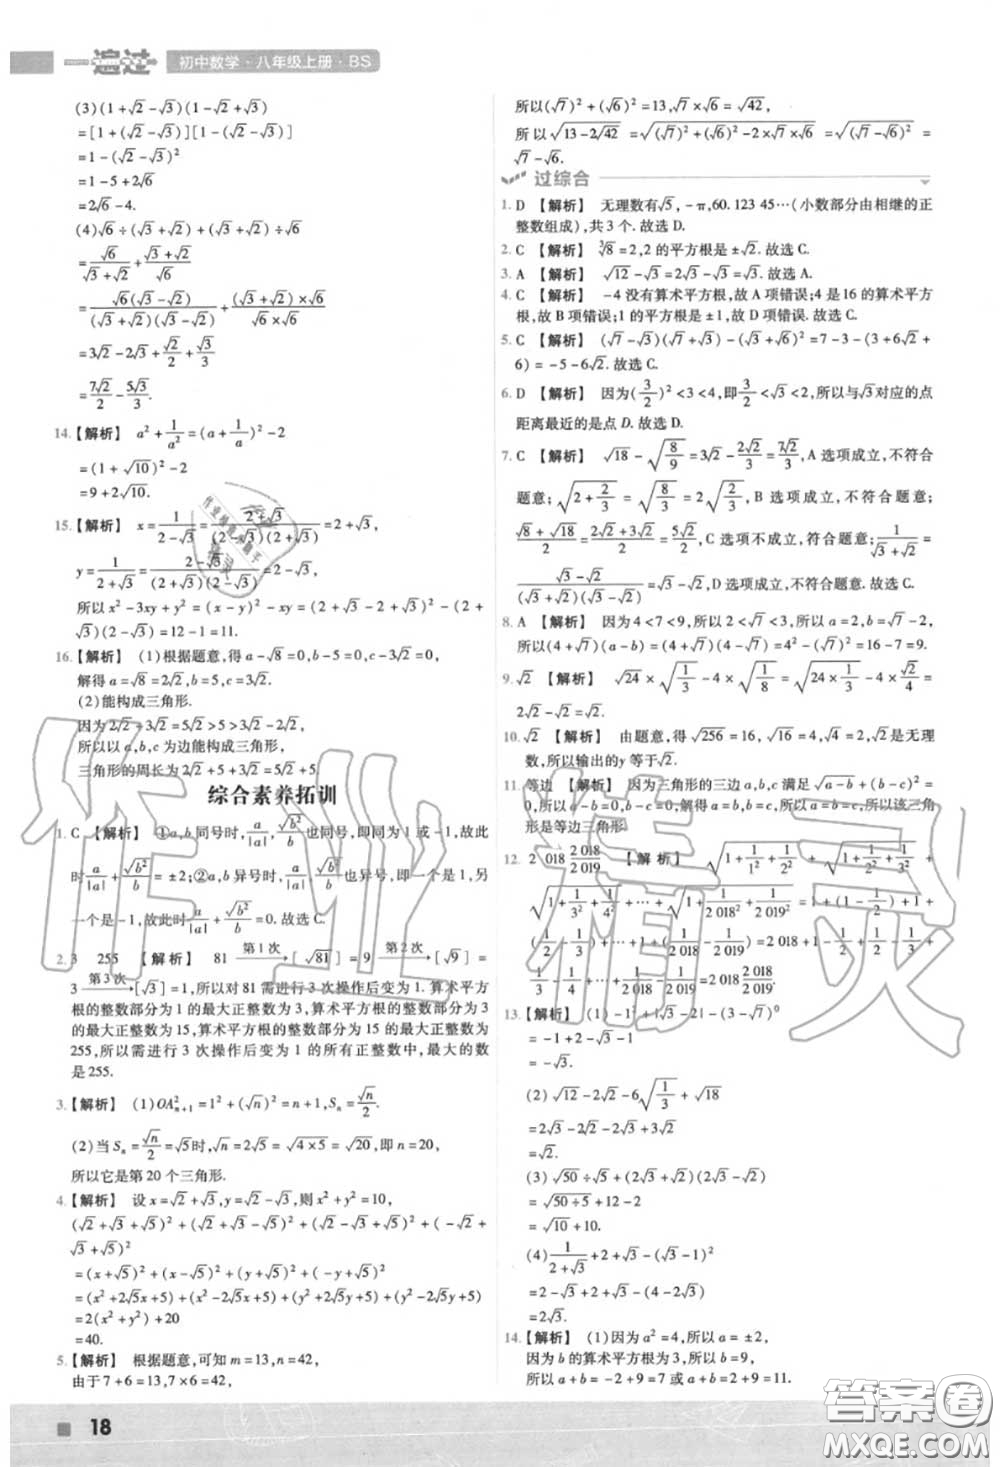 一遍过 初中数学·八年级上册·BS
(3)(1+√2-√3)(1-√2+√3)
=[1+(√2-√3)][1-(√2-√3)]
=1-(√2-√3)²
=1-5+2√6
=2√6-4.
(4)√6÷(√3+√2)+(√3+√2)÷√6
=√6/(√3+√2)+(√3+√2)/√6
=√6(√3-√2)/((√3+√2)(√3-√2))+(√3+√2)×√6/(√6×√6)
=3√2-2√3+√2/2+√3/3
=7√2/2-5√3/3.
14.【解析】 a²+1/a²=(a+1/a)²-2
=(1+√10)²-2
=9+2√10.
15.【解析】 x=1/(2-√3)=(2+√3)/((2-√3)(2+√3))=2+√3,
y=1/(2+√3)=(2-√3)/((2+√3)(2-√3))=2-√3,
所以x²-3xy+y²=(x-y)²-xy=(2+√3-2+√3)²-(2+
√3)(2-√3)=12-1=11.
16.【解析】 (1)根据题意,得a-√8=0,b-5=0,c-3√2=0,
解得a=√8=2√2,b=5,c=3√2.
(2)能构成三角形.
因为2√2+3√2=5√2>5>3√2-2√2=√2,
所以以a,b,c为边能构成三角形,
三角形的周长为2√2+5+3√2=5√2+5.
综合素养拓训
1. C 【解析】 ①a,b同号时,a/|a|,√b²/b也同号,即同为1或-1,故此
时a/|a|+√b²/b=±2;②a,b异号时,a/|a|,√b²/b也异号,即一个是1,另
一个是-1,故此时a/|a|+√b²/b=0.故选C.
2. 3 255 【解析】 81 第1次→[√81]=9 第2次→[√9]=
3 第3次→[√3]=1,所以对81需进行3次操作后变为1.算术平方
根的整数部分为1的最大正整数为3,算术平方根的整数部分为3
的最大正整数为15,算术平方根的整数部分为15的最大正整数为
255,所以需进行3次操作后变为1的所有正整数中,最大的数
是255.
3.【解析】 (1)OA²ₙ₊₁=1²+(√n)²=n+1,Sₙ=√n/2.
(2)当Sₙ=√n/2=√5时,√n=2√5=√(4×5)=√20,即n=20,
所以它是第20个三角形.
4.【解析】 设x=√2+√3,y=√2-√3,则x²+y²=10,
(√2+√3+√5)²+(√2+√3-√5)²+(√2-√3+√5)²+(-√2+
√3+√5)²
=(x+√5)²+(x-√5)²+(y+√5)²+(-y+√5)²
=(x²+2√5x+5)+(x²-2√5x+5)+(y²+2√5y+5)+(y²-2√5y+5)
=2(x²+y²)+20
=40.
5.【解析】 根据题意,可知m=13,n=42,
由于7+6=13,7×6=42,
所以(√7)²+(√6)²=13,√7×√6=√42,
所以√(13-2√42)=√((√7)²+(√6)²-2×√7×√6)=√((√7-√6)²)=
√7-√6.
过综合
1. D 【解析】 无理数有√5,-π,60.123 45…(小数部分由相继的正
整数组成),共3个.故选D.
2. C 【解析】 ∛8=2,2的平方根是±√2.故选C.
3. A 【解析】 √12-√3=2√3-√3=√3.故选A.
4. C 【解析】 -4没有算术平方根,故A项错误;4是16的算术平方
根,故B项错误;1的平方根是±1,故D项错误.故选C.
5. C 【解析】 (√7-√3)(√7+√3)-(√3+√6)²=7-3-(3+6√2+
6)=-5-6√2.故选C.
6. D 【解析】 因为(3/2)²<3<4,即3/2<√3<2,所以与√3对应的点
距离最近的是点D.故选D.
7. C 【解析】 √18-√(8/9)=3√2-2√2/3=7√2/3,A选项成立,不符合
题意;√(2+2/3)=√(8/3)=2√(2/3),B选项成立,不符合题意;
(√8+√18)/2=(2√2+3√2)/2=5√2/2,C选项不成立,符合题意;1/(√3+√2)=
(√3-√2)/((√3+√2)(√3-√2))=√3-√2,D选项成立,不符合题意.故选C.
8. A 【解析】 因为4<7<9,所以2<√7<3,所以a=2,b=√7-2,
所以(4+√7)(a-b)=(4+√7)(4-√7)=4²-(√7)²=16-7=9.
9. √2 【解析】 √24×√(1/3)-4×√(1/8)=√(24×1/3)-4×√2/4=
2√2-√2=√2.
10. √2 【解析】 由题意,得√256=16,√16=4,√4=2,√2是无理
数,所以输出的y等于√2.
11. 等边 【解析】 因为三角形的三边a,b,c满足√(a-b)+(b-c)²=
0,所以a-b=0,b-c=0,解得a=b,b=c,所以a=b=c,所以该三角
形是等边三角形.
12. 2 018 2 018/2 019 【解析】 √(1+1/1²+1/2²)+√(1+1/2²+1/3²)+
√(1+1/3²+1/4²)+…+√(1+1/2 018²+1/2 019²)=1+(1-1/2)+1+
(1/2-1/3)+…+1+(1/2 018-1/2 019)=2 018+1-1/2+
1/2-1/3+…+1/2 018-1/2 019=2 018 2 018/2 019.
13.【解析】 (1)-1²+|√3-2|-(3-√7)⁰
=-1+2-√3-1
=-√3.
(2)√12-2√3-6√(1/3)+√18
=2√3-2√3-2√3+3√2
(3)√50÷√5+(√3+√2)²(5-2√6)
=√(50÷5)+12-2
=√10+10.
(4)1/(2+√3)+2+√3-(√3-1)²
=2-√3+2+√3-4+2√3
=2√3.
14.【解析】 (1)因为a²=4,所以a=±2,
因为b的算术平方根为3,所以b=9,
所以a+b=-2+9=7或a+b=2+9=11.
18
作业精灵
答案圈
MXQE.COM